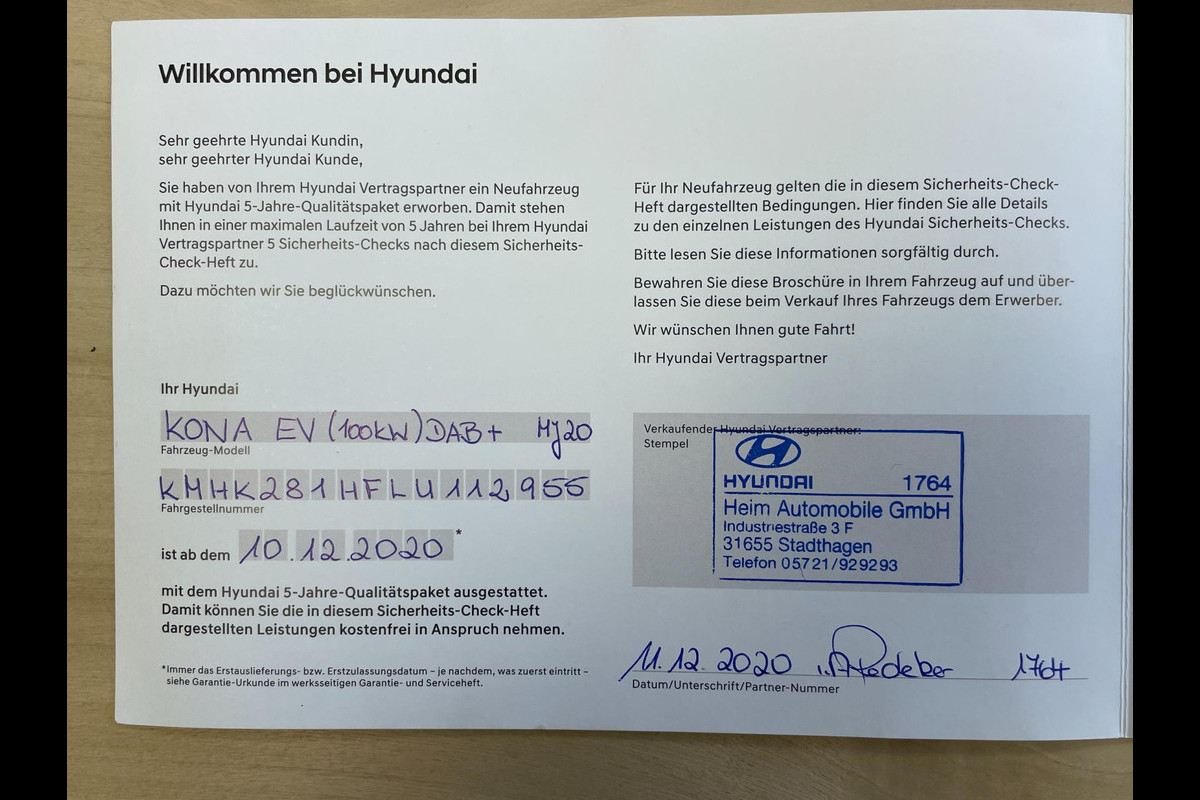 Willkommen bei Hyundai
Sehr geehrte Hyundai Kundin,
sehr geehrter Hyundai Kunde,
Sie haben von Ihrem Hyundai Vertragspartner ein Neufahrzeug
mit Hyundai 5-Jahre-Qualitätspaket erworben. Damit stehen
Ihnen in einer maximalen Laufzeit von 5 Jahren bei Ihrem Hyundai
Vertragspartner 5 Sicherheits-Checks nach diesem Sicherheits-
Check-Heft zu.
Dazu möchten wir Sie beglückwünschen.
Ihr Hyundai
KONA EV (100KW) DAB+ MJ20
Fahrzeug-Modell
KMHK281HFLU112955
Fahrgestellnummer
ist ab dem 10.12.2020 *
mit dem Hyundai 5-Jahre-Qualitätspaket ausgestattet.
Damit können Sie die in diesem Sicherheits-Check-Heft
dargestellten Leistungen kostenfrei in Anspruch nehmen.
*Immer das Erstauslieferungs- bzw. Erstzulassungsdatum – je nachdem, was zuerst eintritt –
siehe Garantie-Urkunde im werksseitigen Garantie- und Serviceheft.
Für Ihr Neufahrzeug gelten die in diesem Sicherheits-Check-
Heft dargestellten Bedingungen. Hier finden Sie alle Details
zu den einzelnen Leistungen des Hyundai Sicherheits-Checks.
Bitte lesen Sie diese Informationen sorgfältig durch.
Bewahren Sie diese Broschüre in Ihrem Fahrzeug auf und über-
lassen Sie diese beim Verkauf Ihres Fahrzeugs dem Erwerber.
Wir wünschen Ihnen gute Fahrt!
Ihr Hyundai Vertragspartner
Verkaufender Hyundai Vertragspartner:
Stempel
HYUNDAI 1764
Heim Automobile GmbH
Industriestraße 3 F
31655 Stadthagen
Telefon 05721/929293
11.12.2020 1764
Datum/Unterschrift/Partner-Nummer